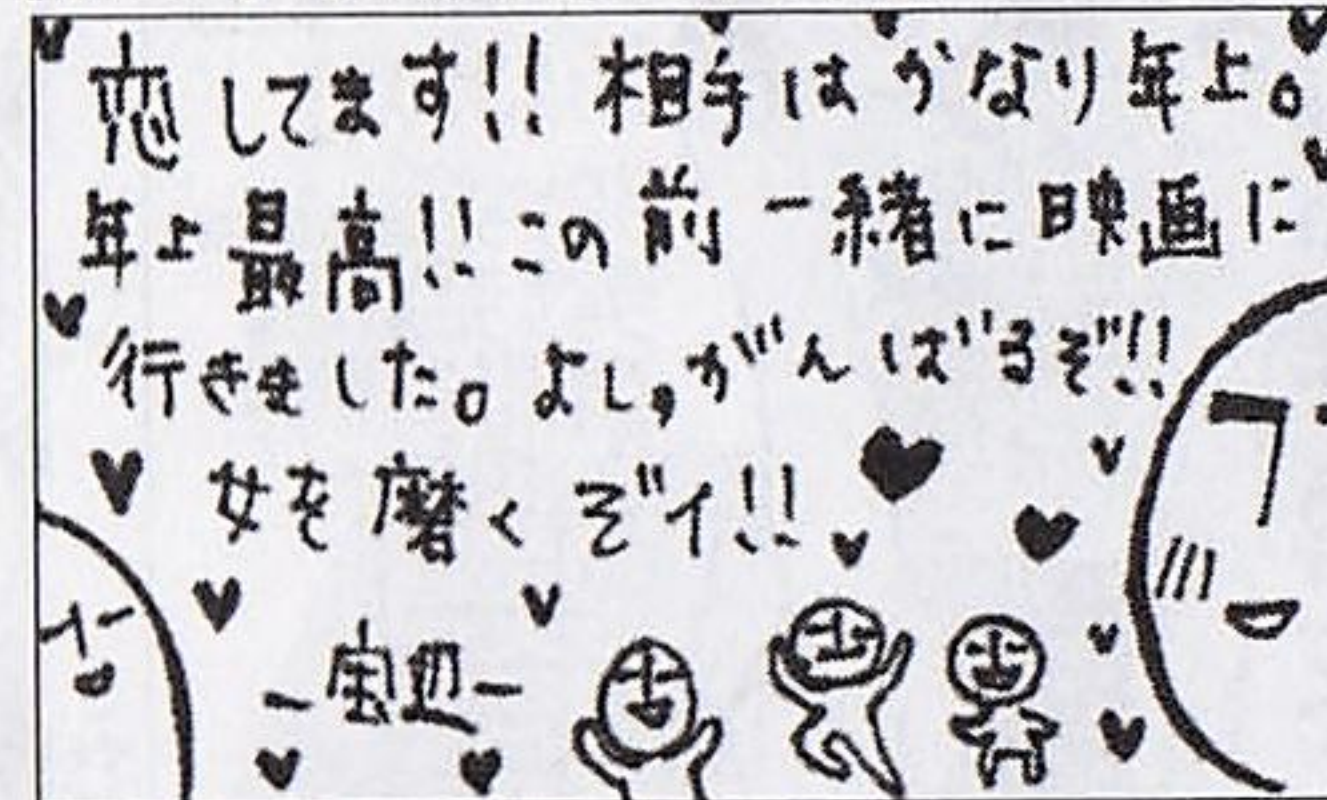 恋してます!! 相手はかなり年上。
年上最高!! この前一緒に映画に
行きました。よし。がんばるぞ!!
女を磨くぞイ!!